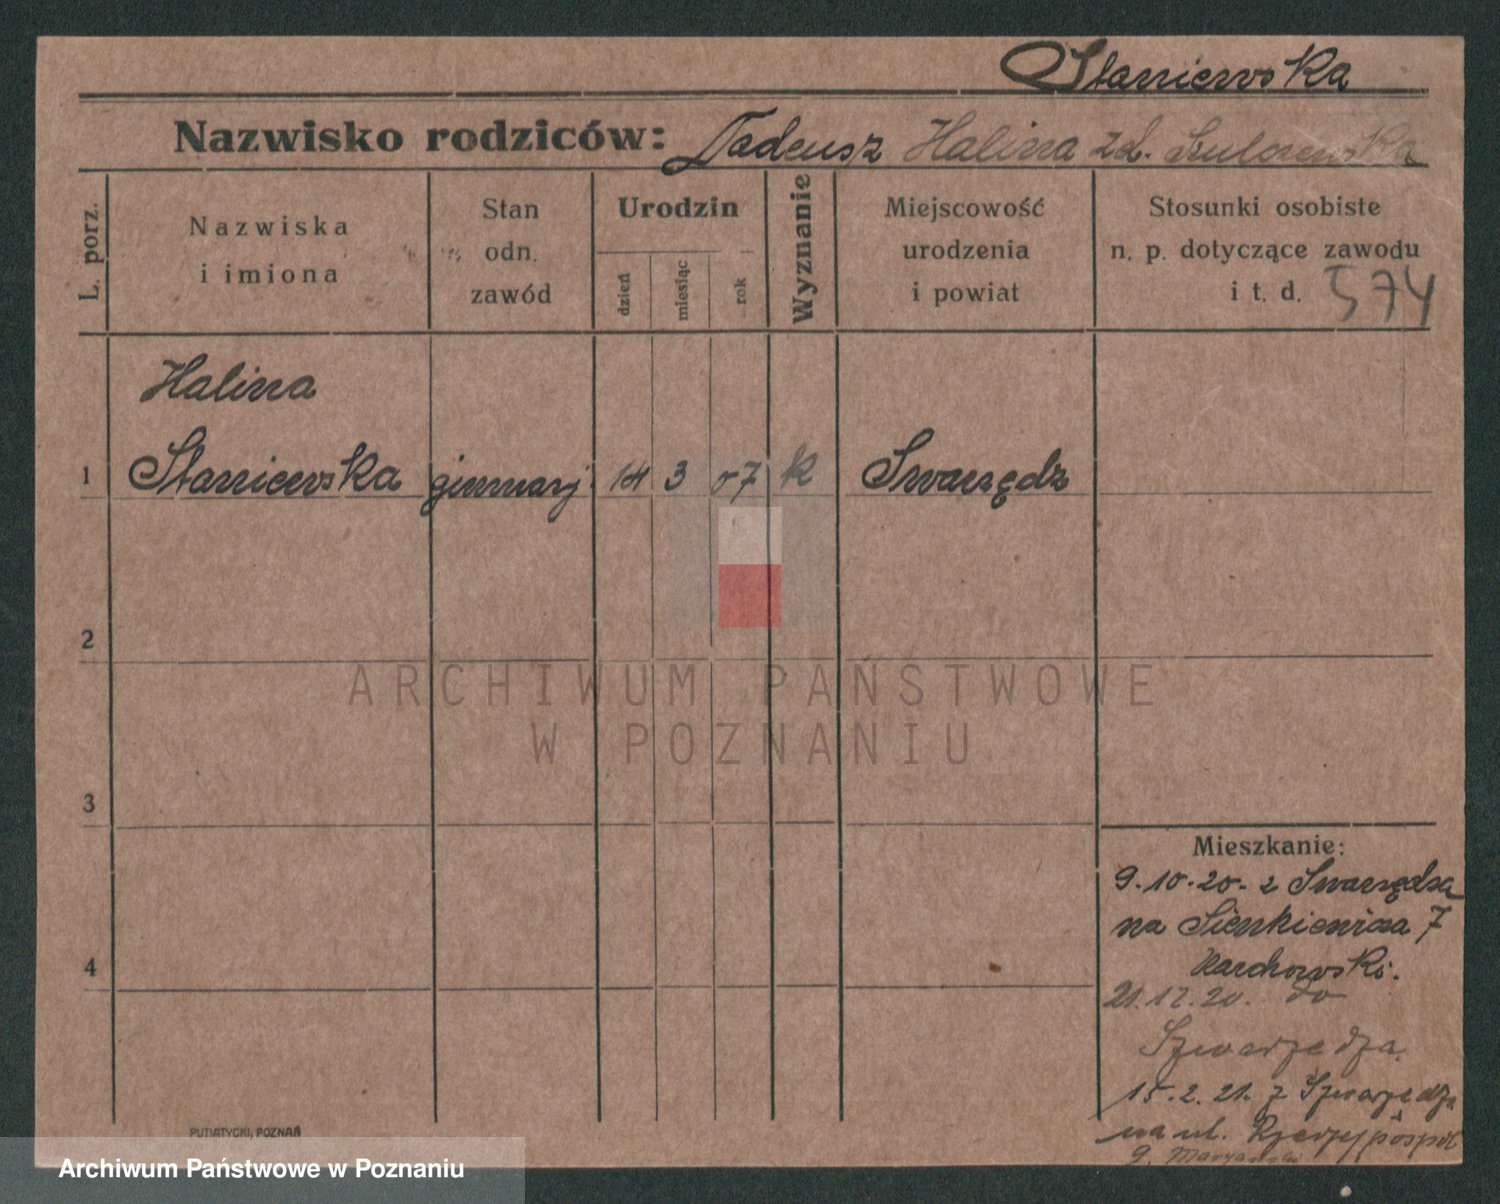 Staniewska
Nazwisko rodziców: Tadeusz Halina zd. Szulczewska
L. porz.
Nazwiska
i imiona
Stan
odn.
zawód
Urodzin
dzień
miesiąc
rok
Wyznanie
Miejscowość
urodzenia
i powiat
Stosunki osobiste
n. p. dotyczące zawodu
i t. d. 574
Halina
1 Staniewska 14 3 07 k Swarzędz
2
3
4
Mieszkanie:
9.10.20. z Swarzędza
na Sienkiewicza 7
21.12.20. do
Szwarzędza.
15.2.21. z Szwarzędza
na ul. Rzeczypospol
9.
PUTIATYCKI, POZNAŃ
ARCHIWUM PAŃSTWOWE
W POZNANIU
Archiwum Państwowe w Poznaniu